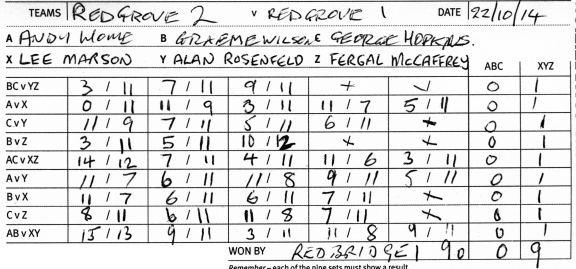 TEAMS REDGROVE 2 V REDGROVE 1 DATE 22/10/14
A ANDY HOWE B GRAEME WILSON C GEORGE HOPKINS.
X LEE MARSON Y ALAN ROSENFELD Z FERGAL McCAFFREY ABC XYZ
BC v YZ 3 / 11 7 / 11 9 / 11 + ✓ 0 1
A v X 0 / 11 11 / 9 3 / 11 11 / 7 5 / 11 0 1
C v Y 11 / 9 7 / 11 5 / 11 6 / 11 x 0 1
B v Z 3 / 11 5 / 11 10 / 12 x x 0 1
AC v XZ 14 / 12 7 / 11 4 / 11 11 / 6 3 / 11 0 1
A v Y 11 / 7 6 / 11 11 / 8 9 / 11 5 / 11 0 1
B v X 11 / 7 6 / 11 6 / 11 7 / 11 x 0 1
C v Z 8 / 11 6 / 11 11 / 8 7 / 11 x 0 1
AB v XY 15 / 13 9 / 11 3 / 11 11 / 8 9 / 11 0 1
WON BY REDBRIDGE 1 90 0 9
Remember – each of the nine sets must show a result